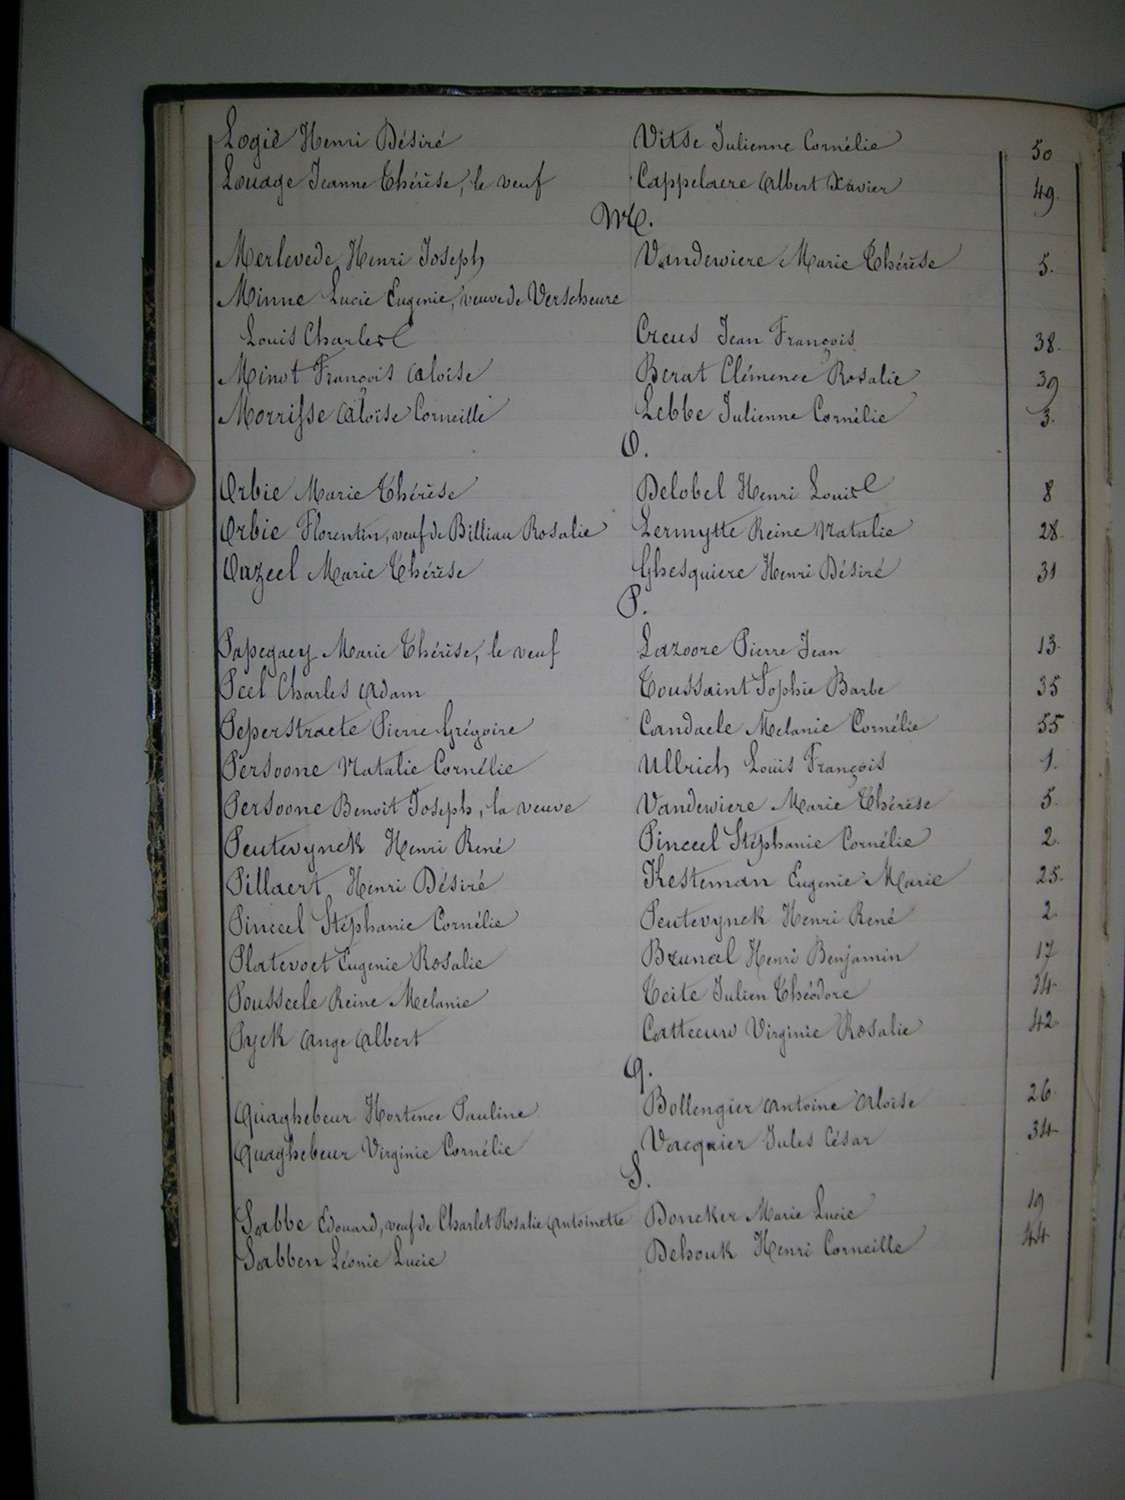 Logie Henri Désiré Vitse Julienne Cornélie 50
Louage Jeanne Thérèse, le veuf Cappelaere Albert Xavier 49.
M.
Merlevede Henri Joseph Vandewiere Marie Thérèse 5.
Minne Lucie Eugenie, veuve de Verscheure
Louis Charles Creus Jean François 38.
Minot François Aloïse Berat Clémence Rosalie 39
Morrisse Aloïse Corneille Lebbe Julienne Cornélie 3.
O.
Orbie Marie Thérèse Delobel Henri Louis 8
Orbie Florentin, veuf de Billiau Rosalie Lermytte Reine Natalie 28.
Oazeel Marie Thérèse Ghesquiere Henri Désiré 31
P.
Papegaey Marie Thérèse, le veuf Lazoore Pierre Jean 13.
Peel Charles Adam Toussaint Sophie Barbe 35
Peperstraete Pierre Grégoire Candaele Melanie Cornélie 55
Persoone Natalie Cornélie Ullrich Louis François 1.
Persoone Benoit Joseph, la veuve Vandewiere Marie Thérèse 5.
Peutevynck Henri René Pinceel Stéphanie Cornélie 2.
Pillaert Henri Désiré Kesteman Eugenie Marie 25.
Pinceel Stéphanie Cornélie Peutevynck Henri René 2.
Platevoet Eugenie Rosalie Brunal Henri Benjamin 17
Pousseele Reine Melanie Teite Julien Théodore 14.
Pyck Ange Albert Catteeuw Virginie Rosalie 42.
Q.
Quaghebeur Hortence Pauline Bollengier Antoine Aloïse 26.
Quaghebeur Virginie Cornélie Vacquier Jules César 34.
S.
Sabbe Edouard, veuf de Charlet Rosalie Antoinette Doncker Marie Lucie 19
Sabben Léonie Lucie Dehouk Henri Corneille 44.